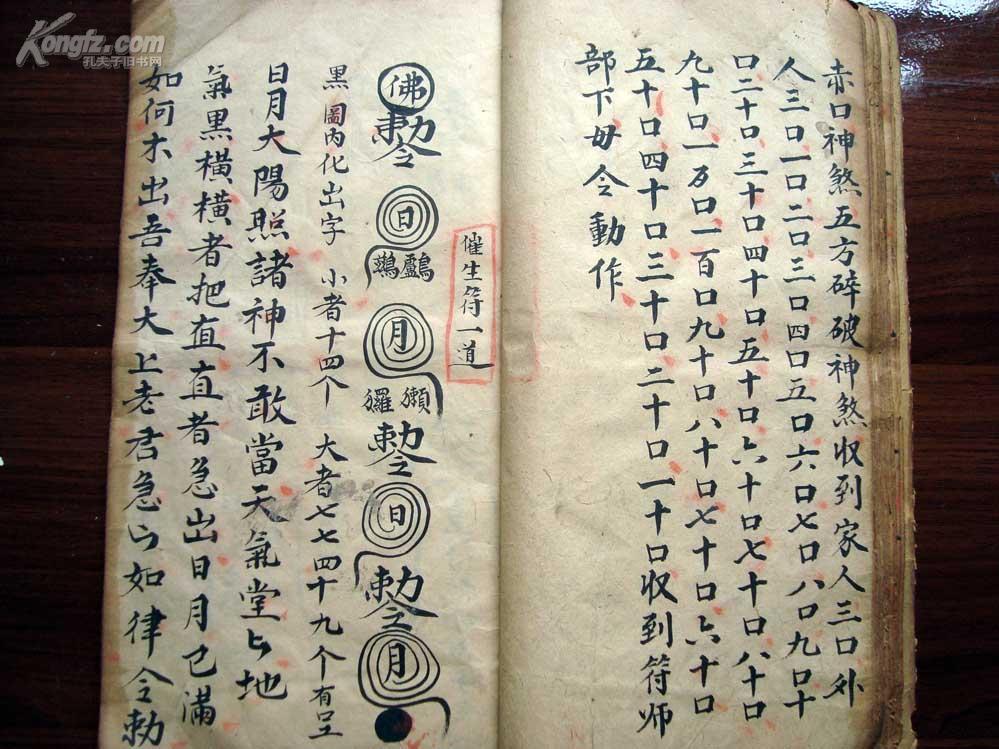 赤口神煞五方碎破神煞收到家人三口外
人三口一口二口三口四口五口六口七口八口九口十
口二十口三十口四十口五十口六十口七十口八十口
九十口一万口一百口九十口八十口七十口六十口
五十口四十口三十口二十口一十口收到符师
部下毋令動作
催生符一道
佛
敕令
日
月
敕令
日
敕令
月
黑圈内化出字 小者十四个 大者七七四十九个有
日月大陽照諸神不敢當天氣堂々地
氣黑横横者把直直者急出日月已满
如何不出吾奉大上老君急々如律令勅
Kongfz.com
孔夫子旧书网